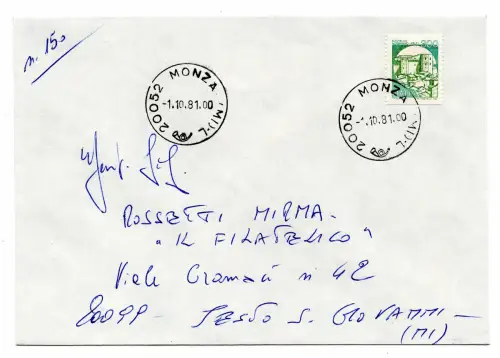 n. 150
200
20052 MONZA (MI)-L
-1.10.81.00
20052 MONZA (MI)-L
-1.10.81.00
ROSSETTI MIRMA -
"IL FILATELICO"
Viale Gramsci n 42
20099 - SESTO S. GIOVANNI -
(MI)